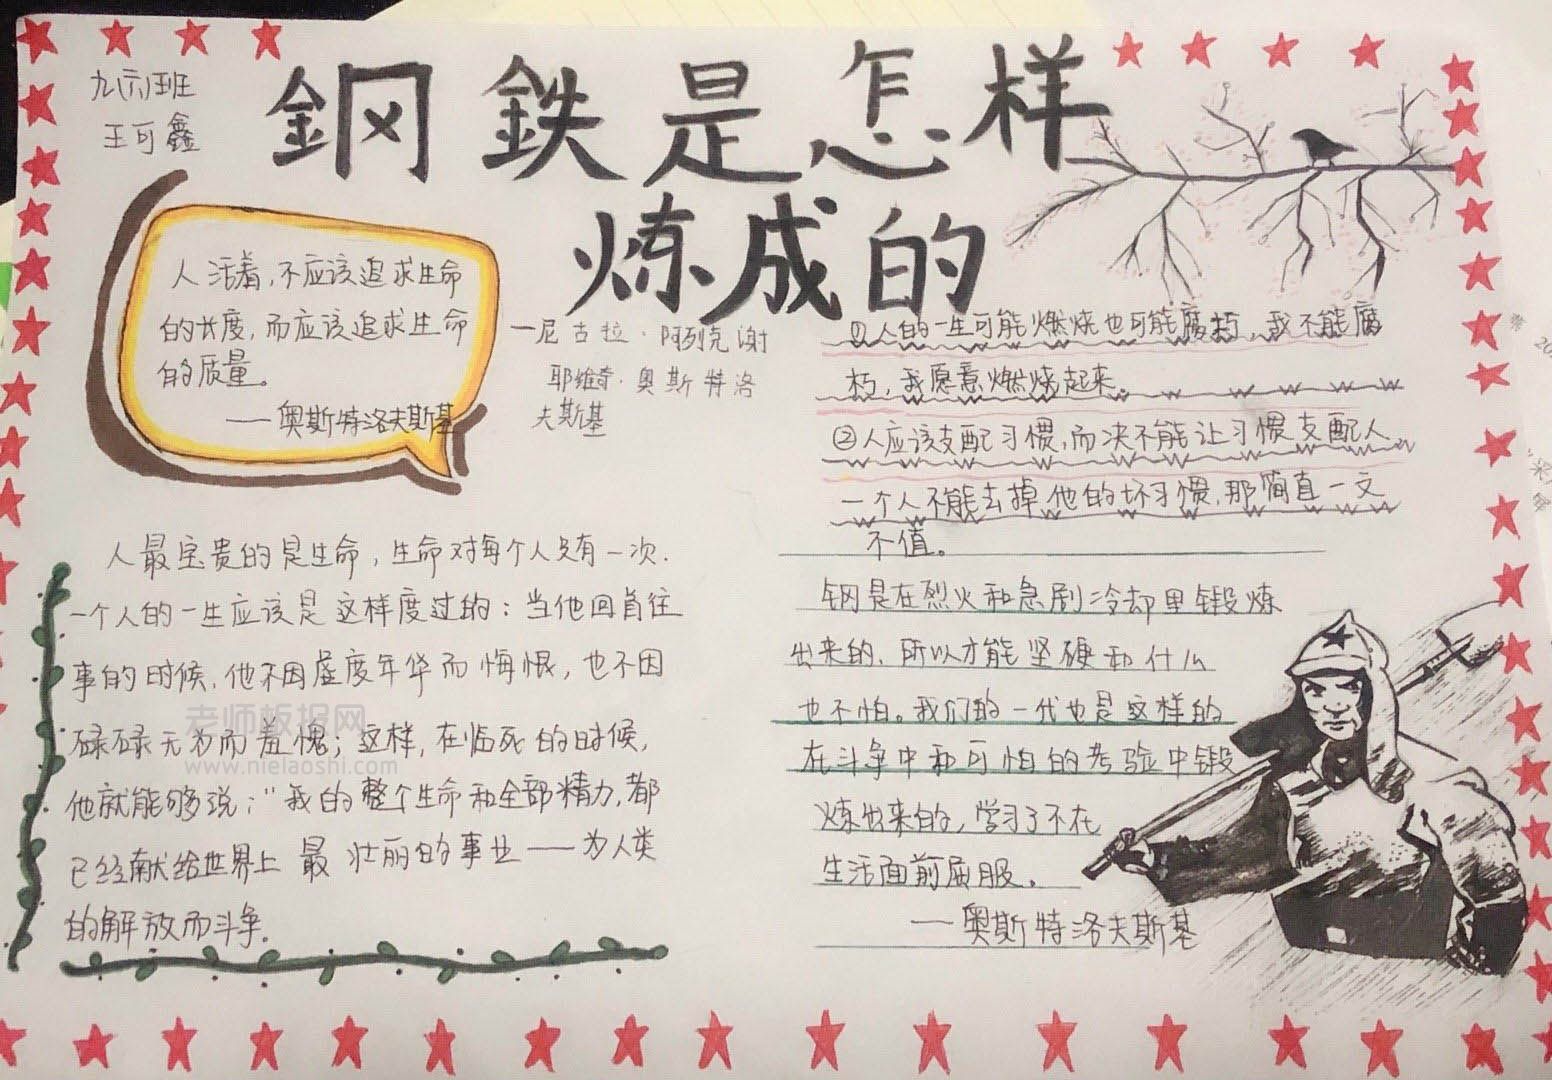 九(六)班
王可鑫
鋼鉄是怎样
炼成的
人活着,不应该追求生命
的长度,而应该追求生命
的质量。
——奥斯特洛夫斯基
一尼古拉·阿列克谢
耶维奇·奥斯特洛
夫斯基
①人的一生可能燃烧也可能腐朽,我不能腐
朽,我愿意燃烧起来。
②人应该支配习惯,而决不能让习惯支配人
一个人不能去掉他的坏习惯,那简直一文
不值。
人最宝贵的是生命,生命对每个人只有一次.
一个人的一生应该是这样度过的:当他回首往
事的时候,他不因虚度年华而悔恨,也不因
碌碌无为而羞愧;这样,在临死的时候,
他就能够说:"我的整个生命和全部精力,都
已经献给世界上最壮丽的事业——为人类
的解放而斗争.
钢是在烈火和急剧冷却里锻炼
出来的,所以才能坚硬和什么
也不怕。我们的一代也是这样的
在斗争中和可怕的考验中锻
炼出来的,学习了不在
生活面前屈服.
——奥斯特洛夫斯基
老师板报网
www.nielaoshi.com